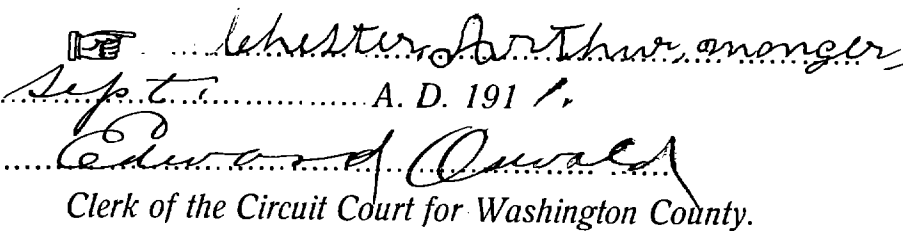 Chester, Arthur, monger,
Sept. A. D. 1911.
Edward Oswald
Clerk of the Circuit Court for Washington County.